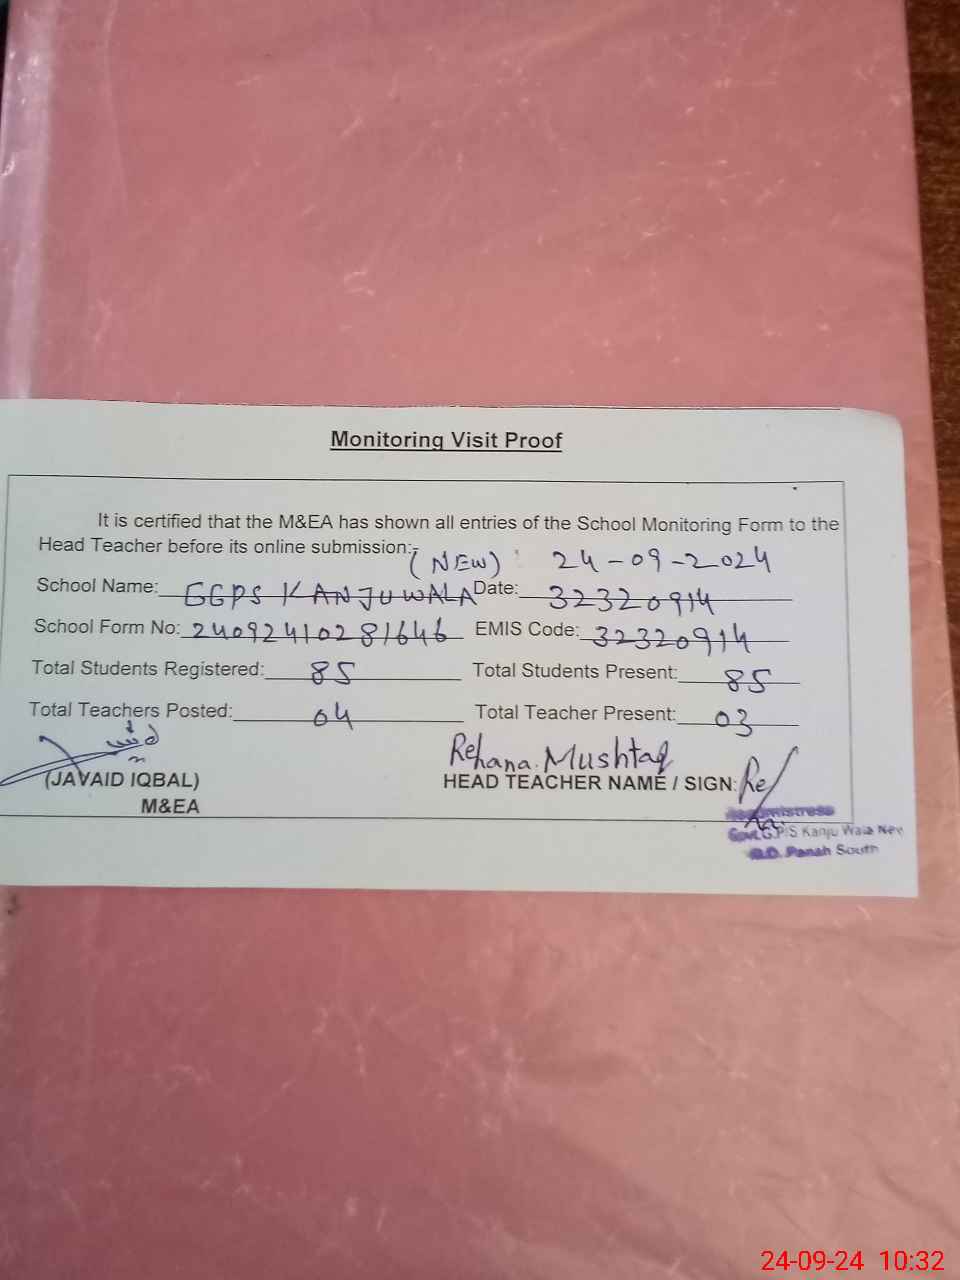 Monitoring Visit Proof
It is certified that the M&EA has shown all entries of the School Monitoring Form to the
Head Teacher before its online submission:-
(NEW) 24-09-2024
School Name: GGPS KANJUWALA Date: 32320914
School Form No: 24092410281646 EMIS Code: 32320914
Total Students Registered: 85 Total Students Present: 85
Total Teachers Posted: 04 Total Teacher Present: 03
Rehana Mushtaq
(JAVAID IQBAL) HEAD TEACHER NAME / SIGN:
M&EA
Headmistress
Govt. G.P/S Kanju Wala New
Q.D. Panah South
24-09-24 10:32